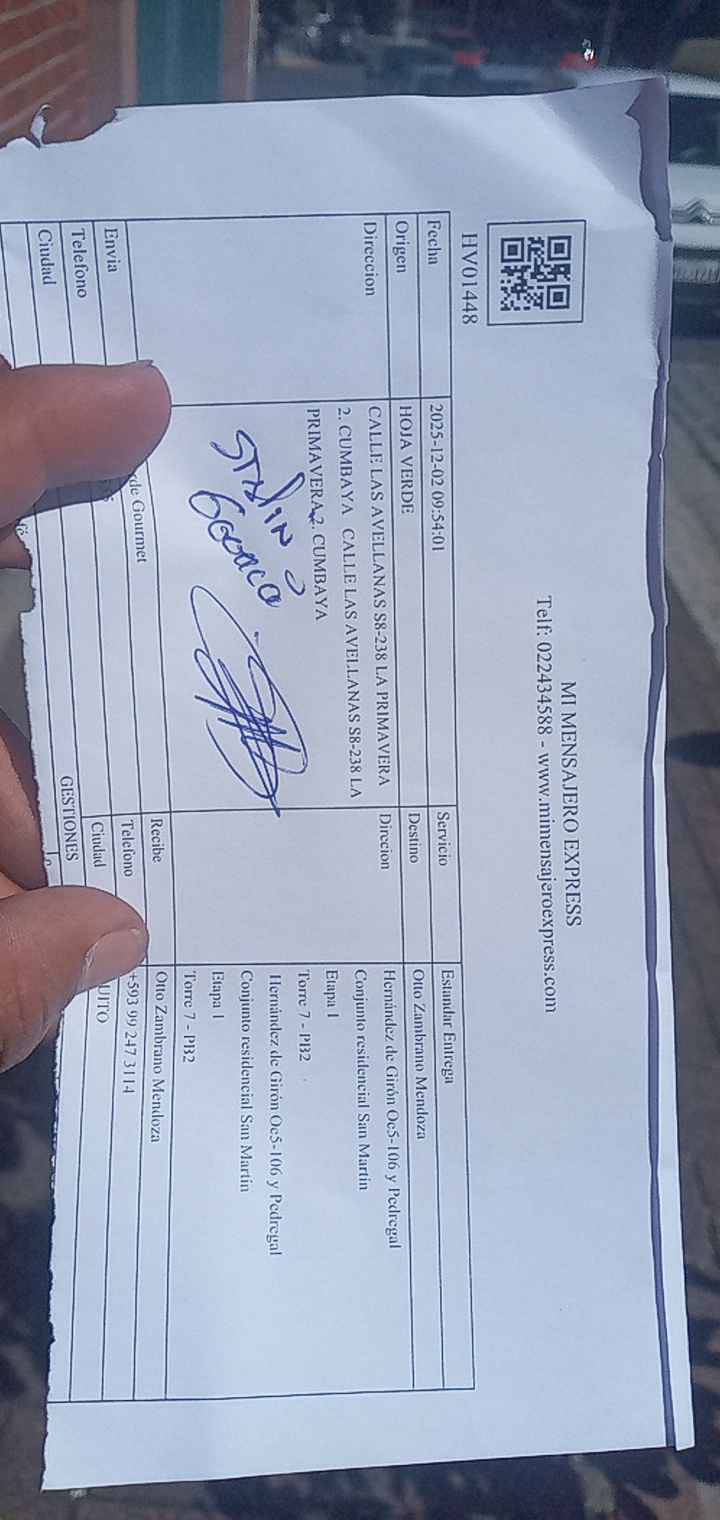 MI MENSAJERO EXPRESS
Telf: 022434588 - www.mimensajeroexpress.com
HV01448
Fecha 2025-12-02 09:54:01 Servicio Estandar Entrega
Origen HOJA VERDE Destino Otto Zambrano Mendoza
Direccion CALLE LAS AVELLANAS S8-238 LA PRIMAVERA
2. CUMBAYA CALLE LAS AVELLANAS S8-238 LA
PRIMAVERA 2. CUMBAYA
Direcion Hernández de Girón Oe5-106 y Pedregal
Conjunto residencial San Martin
Etapa 1
Torre 7 - PB2
Hernández de Girón Oe5-106 y Pedregal
Conjunto residencial San Martin
Etapa 1
Torre 7 - PB2
STALIN
Envia de Gourmet Recibe Otto Zambrano Mendoza
Telefono Telefono +593 99 247 3114
Ciudad Ciudad UITO
GESTIONES